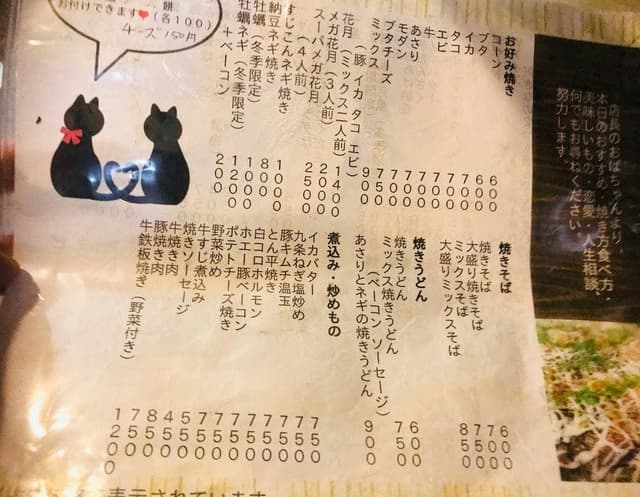 店長のおばちゃんより
本日のおすすめ、焼き方食べ方・
美味しいもの、恋愛、人生相談、
何でもお尋ねください
努力します。
お好み焼き
コーン 600
ブタ 600
イカ 700
タコ 700
エビ 700
牛 700
あさり 700
モダン 700
ブタチーズ 750
ミックス 900
(豚 イカ タコ エビ)
花月(ミックス二人前) 1400
メガ花月(3人前) 2000
スーパーメガ花月
(4人前) 2500
すじこんネギ焼き 1000
納豆ネギ焼き 800
牡蠣(冬季限定) 1000
牡蠣ネギ(冬季限定) 1200
+ベーコン 200
餅
お付けできます❤(各100)
チーズ150円
焼きそば
焼きそば 600
大盛り焼きそば 700
ミックスそば 750
大盛りミックスそば 850
焼きうどん
焼きうどん 650
ミックス焼きうどん 750
(ベーコン ソーセージ)
あさりとネギの焼きうどん 900
煮込み・炒めもの
イカバター 750
九条ねぎ塩炒め 750
豚キムチ温玉
とん平焼き
白コロホルモン
ホエー豚ベーコン
ポテトチーズ焼き
野菜炒め
牛すじ煮込み
焼きソーセージ
牛焼き肉
豚焼き肉
牛鉄板焼き(野菜付き) 1200
表示されています